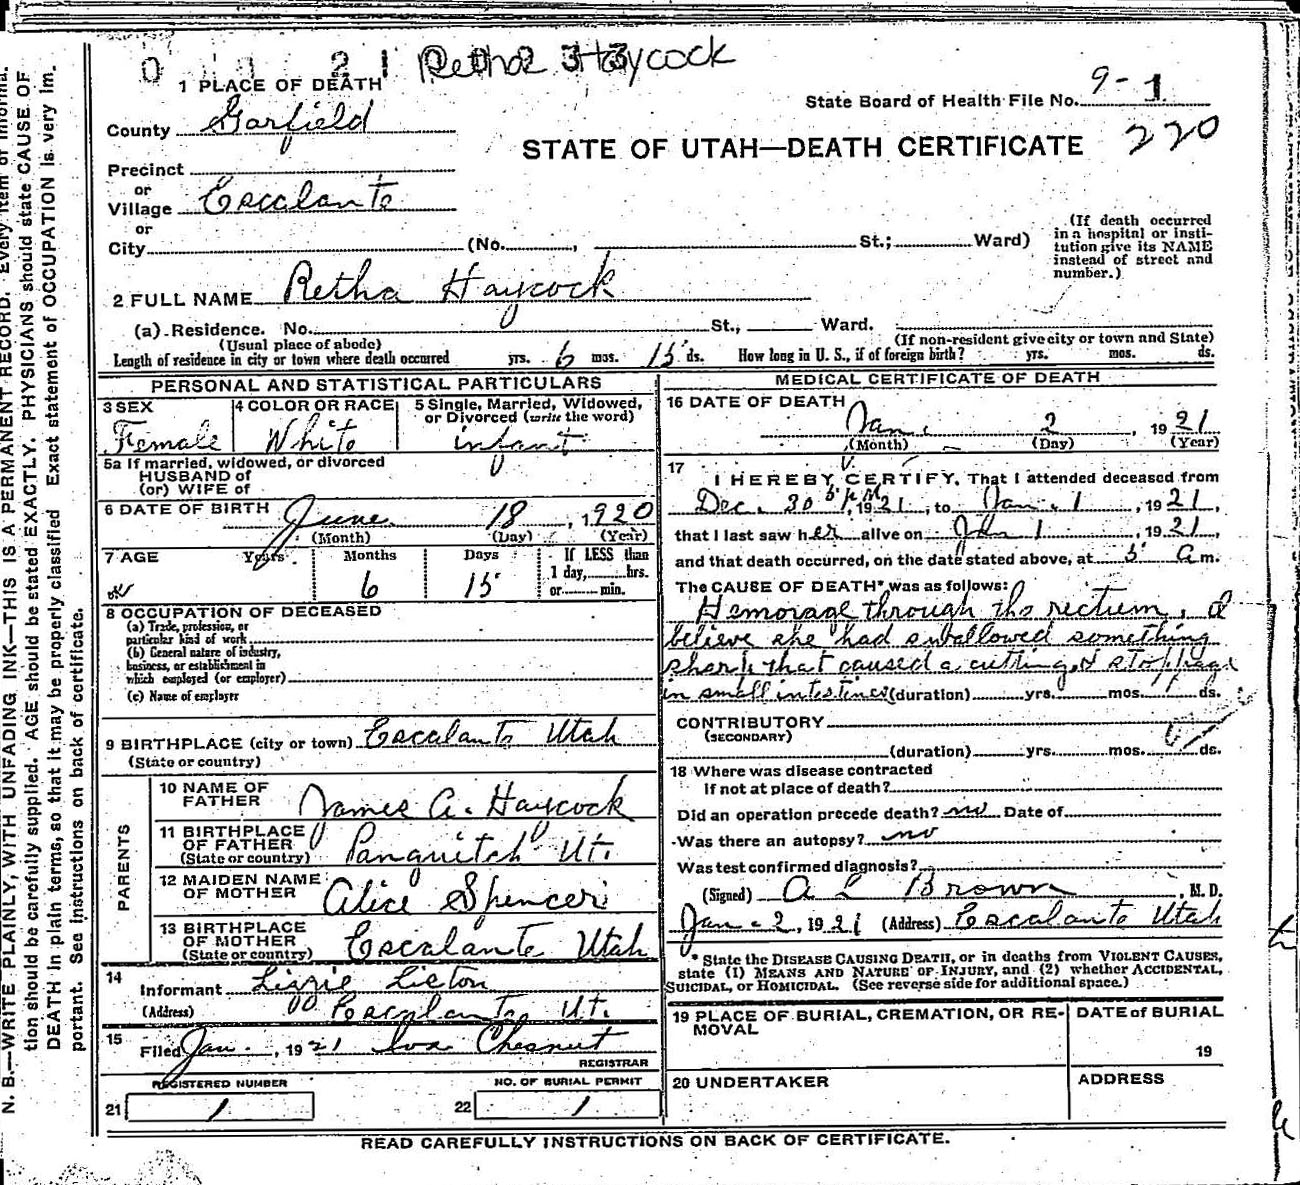 Retha Haycock
1 PLACE OF DEATH
State Board of Health File No. 9-1
County Garfield
220
STATE OF UTAH—DEATH CERTIFICATE
Precinct
or
Village Escalante
or
City (No. , St.; Ward)
(If death occurred in a hospital or institution give its NAME instead of street and number.)
2 FULL NAME Retha Haycock
(a) Residence. No. St., Ward.
(Usual place of abode) (If non-resident give city or town and State)
Length of residence in city or town where death occurred yrs. 6 mos. 15 ds. How long in U. S., if of foreign birth? yrs. mos. ds.
PERSONAL AND STATISTICAL PARTICULARS
3 SEX 4 COLOR OR RACE 5 Single, Married, Widowed, or Divorced (write the word)
Female White infant
5a If married, widowed, or divorced
HUSBAND of
(or) WIFE of
6 DATE OF BIRTH
June 18, 1920
(Month) (Day) (Year)
7 AGE Years Months Days If LESS than
1 day, hrs.
or min.
6 15
8 OCCUPATION OF DECEASED
(a) Trade, profession, or
particular kind of work
(b) General nature of industry,
business, or establishment in
which employed (or employer)
(c) Name of employer
9 BIRTHPLACE (city or town) Escalante Utah
(State or country)
PARENTS
10 NAME OF FATHER James A. Haycock
11 BIRTHPLACE OF FATHER (State or country) Panguitch Ut.
12 MAIDEN NAME OF MOTHER Alice Spencer
13 BIRTHPLACE OF MOTHER (State or country) Escalante Utah
14
Informant Lizzie Liston
(Address) Escalante Ut.
15
Filed Jan. , 1921 Iva Chesnut
REGISTRAR
REGISTERED NUMBER NO. OF BURIAL PERMIT
21 1 22 1
MEDICAL CERTIFICATE OF DEATH
16 DATE OF DEATH
Jan. 2, 1921
(Month) (Day) (Year)
17
I HEREBY CERTIFY, That I attended deceased from
Dec. 30 5 P.M., 1921, to Jan. 1, 1921,
that I last saw her alive on Jan 1, 1921,
and that death occurred, on the date stated above, at 5 a m.
The CAUSE OF DEATH* was as follows:
Hemorage through the rectium, I
believe she had swallowed something
sharp that caused a cutting & stoppage
in small intestines (duration) yrs. mos. 1 ds.
CONTRIBUTORY
(SECONDARY)
(duration) yrs. mos. ds.
18 Where was disease contracted
if not at place of death?
Did an operation precede death? no Date of
Was there an autopsy? no
Was test confirmed diagnosis?
(Signed) A L Brown, M. D.
Jan - 2, 1921 (Address) Escalante Utah
* State the DISEASE CAUSING DEATH, or in deaths from VIOLENT CAUSES,
state (1) MEANS AND NATURE OF INJURY, and (2) whether ACCIDENTAL,
SUICIDAL, or HOMICIDAL. (See reverse side for additional space.)
19 PLACE OF BURIAL, CREMATION, OR REMOVAL DATE of BURIAL
19
20 UNDERTAKER ADDRESS
READ CAREFULLY INSTRUCTIONS ON BACK OF CERTIFICATE.
N. B.—WRITE PLAINLY, WITH UNFADING INK—THIS IS A PERMANENT RECORD. Every item of informa-
tion should be carefully supplied. AGE should be stated EXACTLY. PHYSICIANS should state CAUSE OF
DEATH in plain terms, so that it may be properly classified. Exact statement of OCCUPATION is very im-
portant. See instructions on back of certificate.